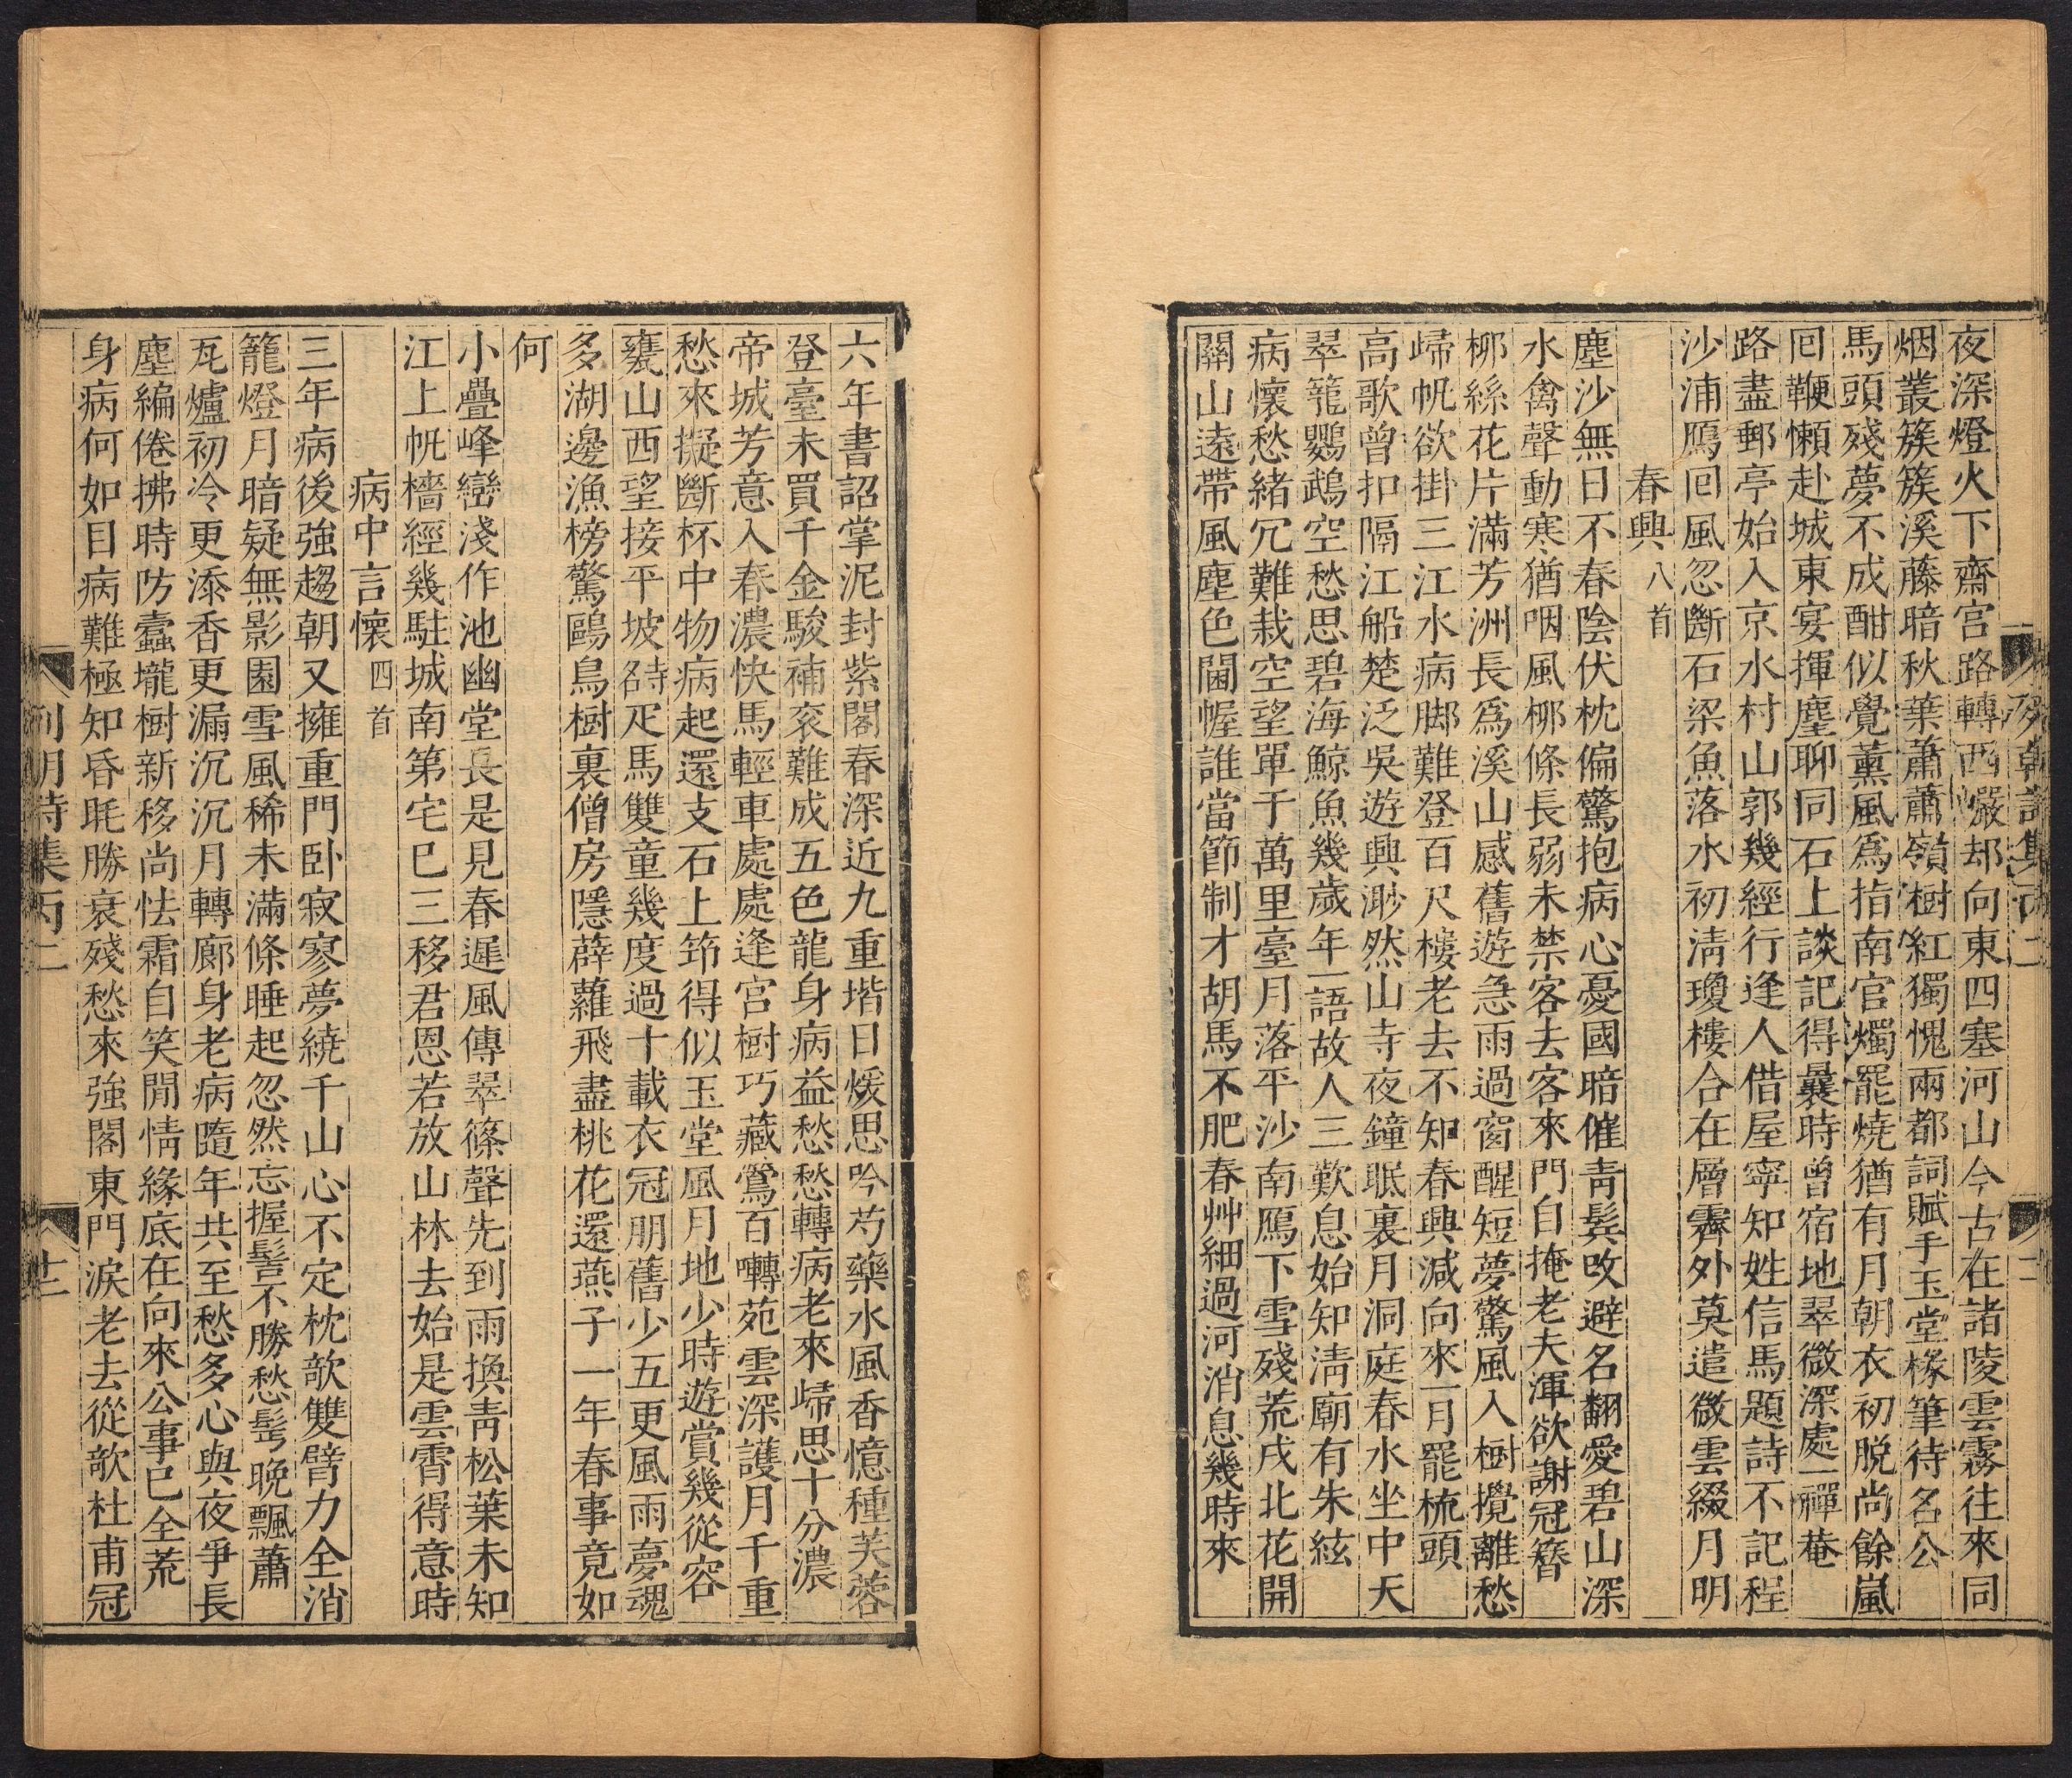 夜深燈火下齋宮路轉西巖却向東四塞河山今古在諸陵雲霧往來同
烟叢簇簇溪藤暗秋葉蕭蕭嶺樹紅獨愧兩都詞賦手玉堂椽筆待名公
馬頭殘夢不成酣似覺薰風爲指南官燭罷燒猶有月朝衣初脱尚餘嵐
回鞭懶赴城東宴揮塵聊同石上談記得曩時曾宿地翠微深處一禪菴
路盡郵亭始入京水村山郭幾經行逢人借屋寧知姓信馬題詩不記程
沙浦鴈回風忽斷石梁魚落水初淸瓊樓合在層霽外莫遣微雲綴月明
春興八首
塵沙無日不春陰伏枕偏驚抱病心憂國暗催靑鬂改避名翻愛碧山深
水禽聲動寒猶咽風栁條長弱未禁客去客來門自掩老夫渾欲謝冠簪
栁絲花片滿芳洲長爲溪山感舊遊急雨過窗醒短夢驚風入樹攪離愁
歸帆欲掛三江水病脚難登百尺樓老去不知春興減向來一月罷梳頭
高歌曾扣隔江船楚泛吳遊興渺然山寺夜鐘眠裏月洞庭春水坐中天
翠籠鸚鵡空愁思碧海鯨魚幾歲年一語故人三歎息始知淸廟有朱絃
病懷愁緒冗難栽空望單于萬里臺月落平沙南鴈下雪殘荒戍北花開
關山遠帶風塵色閫幄誰當節制才胡馬不肥春艸細過河消息幾時來
六年書詔掌泥封紫閣春深近九重堦日煖思吟芍藥水風香憶種芙蓉
登臺未買千金駿補衮難成五色龍身病益愁愁轉病老來歸思十分濃
帝城芳意入春濃快馬輕車處處逢宮樹巧藏鶯百囀苑雲深護月千重
愁來擬斷杯中物病起還支石上筇得似玉堂風月地少時遊賞幾從容
甕山西望接平坡匹馬雙童幾度過十載衣冠朋舊少五更風雨夢魂
多湖邊漁榜驚鷗鳥樹裏僧房隱薜蘿飛盡桃花還燕子一年春事竟如
何
小疊峰巒淺作池幽堂長是見春遲風傳翠篠聲先到雨換靑松葉未知
江上帆檣經幾駐城南第宅已三移君恩若放山林去始是雲霄得意時
病中言懷四首
三年病後強趨朝又擁重門卧寂寥夢繞千山心不定枕欹雙臂力全消
籠燈月暗疑無影園雪風稀未滿條睡起忽然忘握髻不勝愁髩晚飄蕭
瓦爐初冷更添香更漏沉沉月轉廊身老病隨年共至愁多心與夜爭長
塵編倦拂時防蠹壠樹新移尚怯霜自笑閒情緣底在向來公事已全荒
身病何如目病難極知昏眊勝衰殘愁來強閣東門淚老去從欹杜甫冠
列朝詩集丙二
十二